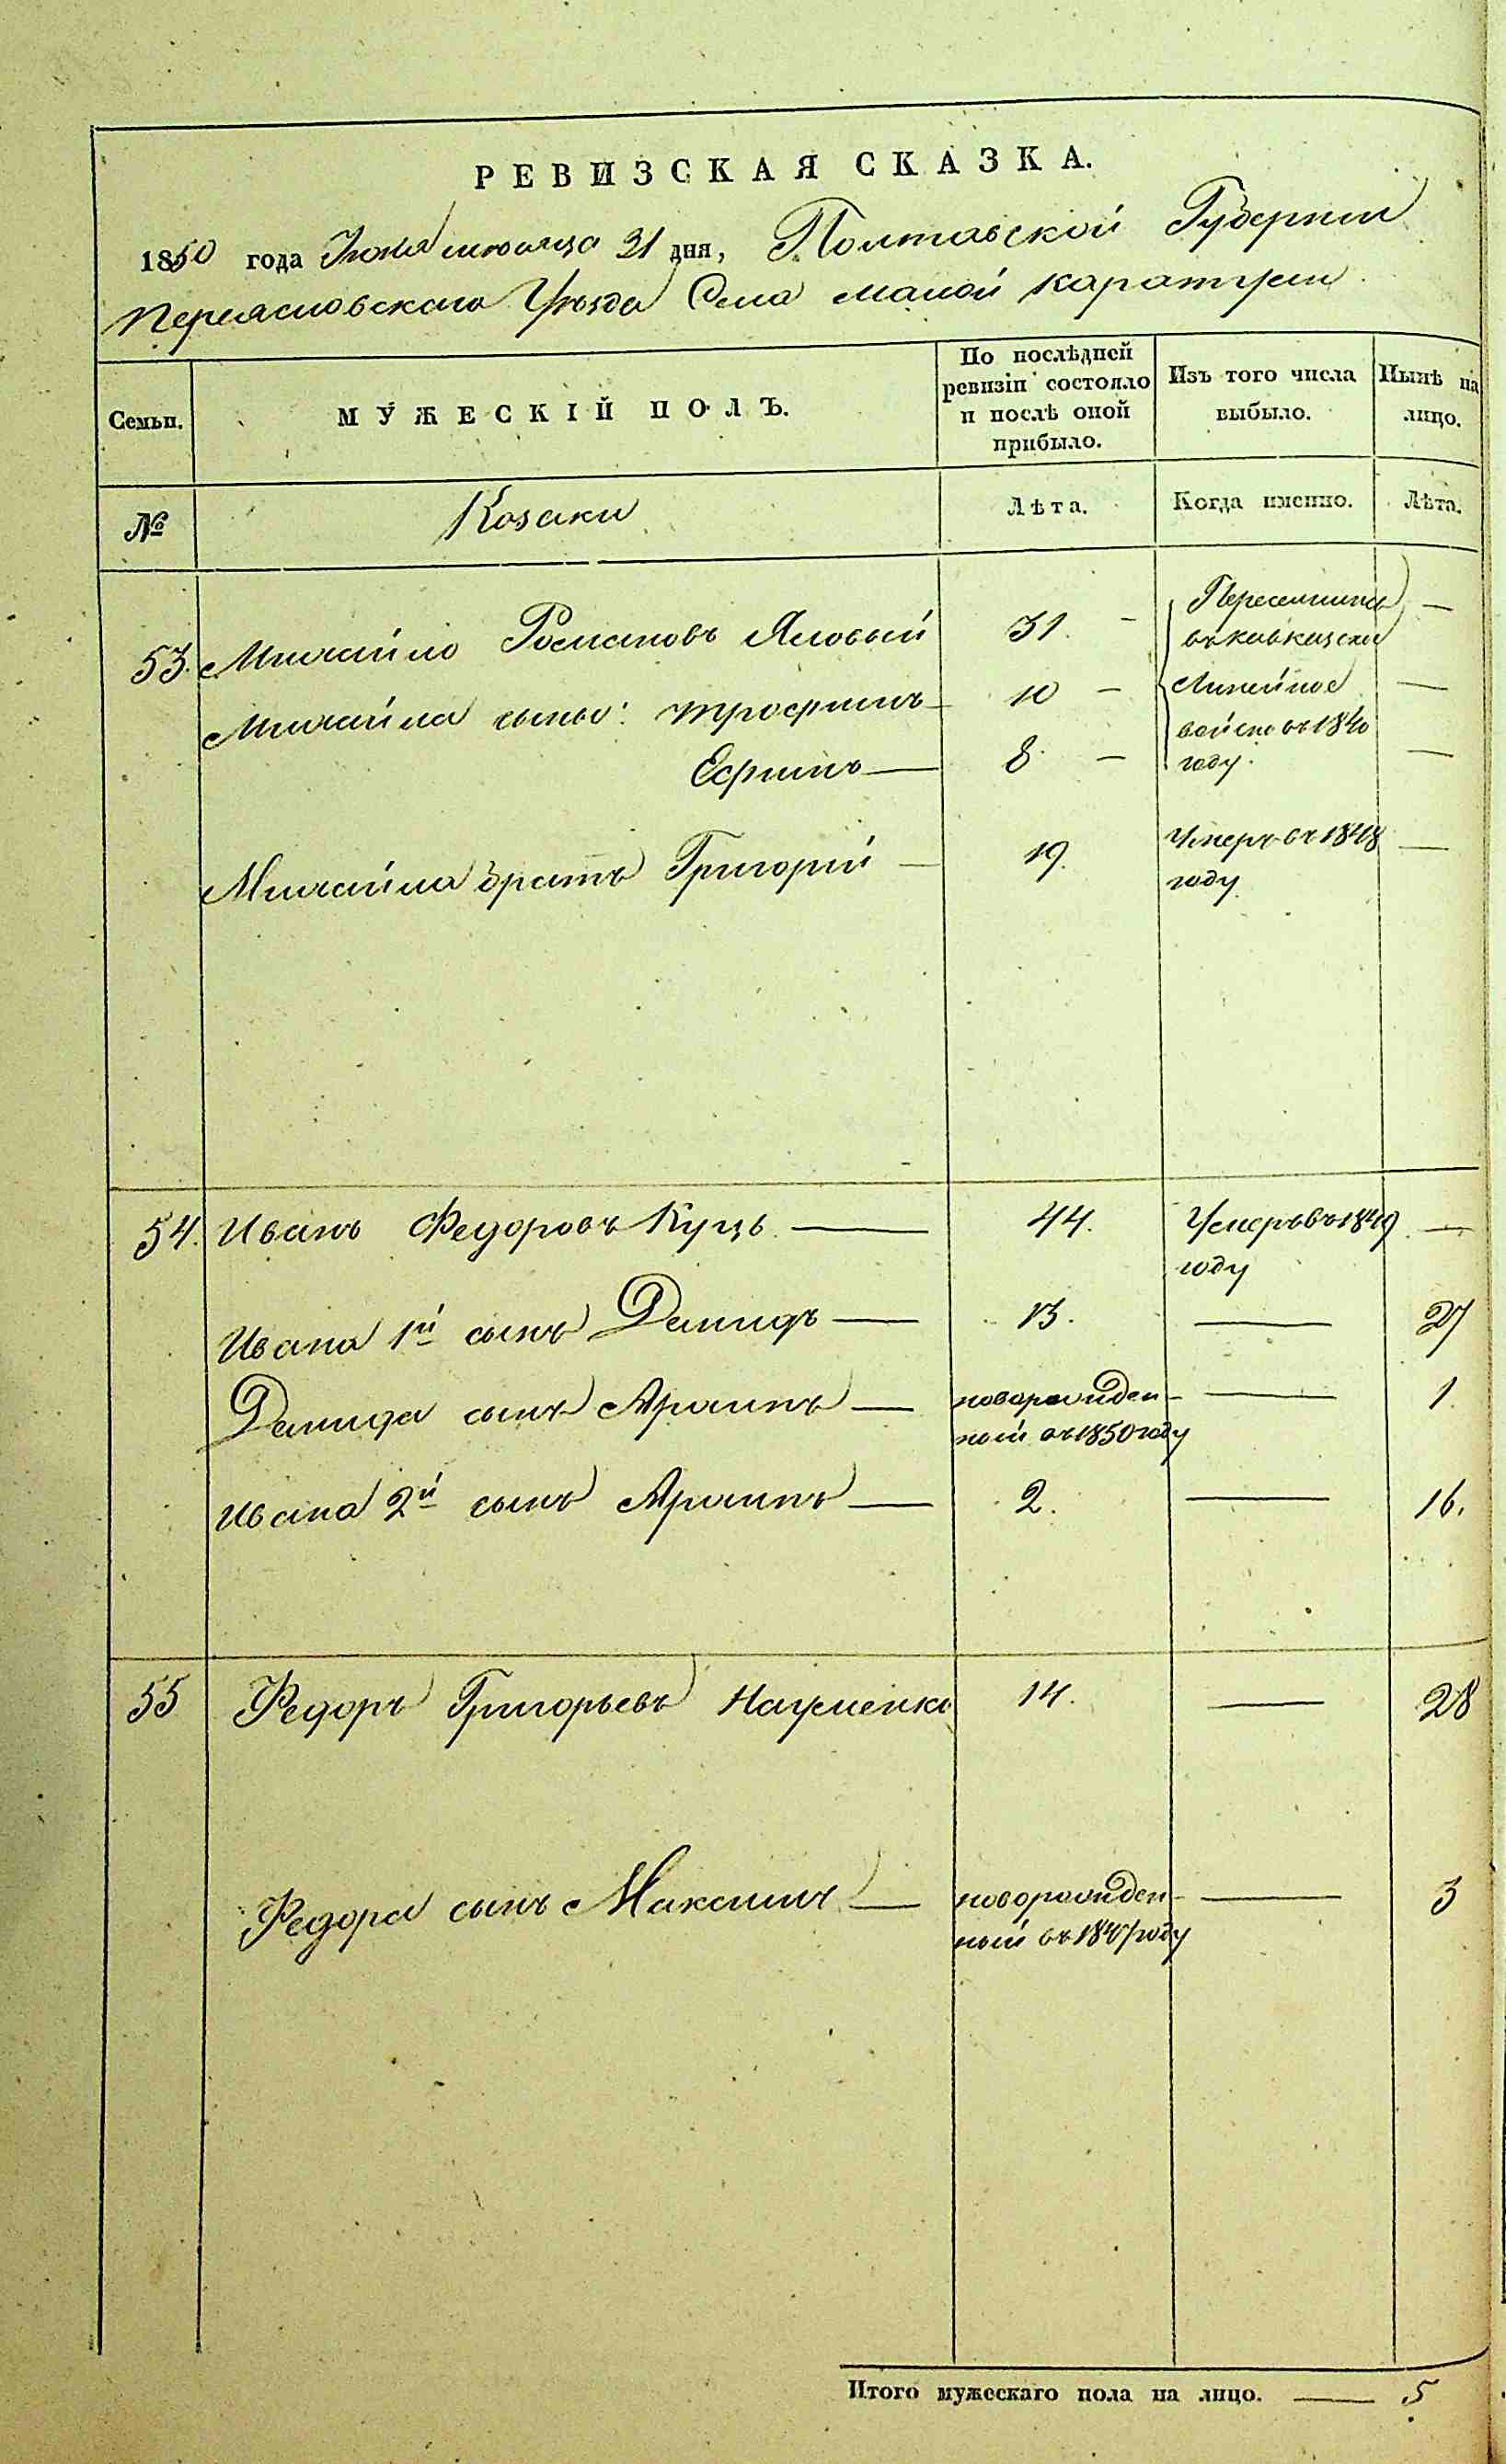 РЕВИЗСКАЯ СКАЗКА.
1850 года Июня месяца 21 дня, Полтавской Губернии
Переясловского Уезда Села малой каратули
Семьи.
МУЖЕСКІЙ ПОЛЪ.
По послѣдней ревизіи состояло и послѣ оной прибыло.
Изъ того числа выбыло.
Нынѣ на лицо.
№
Козаки
Лѣта.
Когда именно.
Лѣта.
53. Михайло Романовъ Яловый 31. – Переселился —
въ кавказское
Михайла сыны: Трофимъ 10 – Линейное —
войско въ 1840
Ефимъ — 8. – году. —
Михайла братъ Григорій — 19. Умеръ въ 1848 —
году
54. Иванъ Федоровъ Куць — 44. Умеръ въ 1849 —
году
Ивана 1й сынъ Демидъ — 13. — 27
Демида сынъ Архипъ — новорожден- — 1.
ный въ 1850 году
Ивана 2й сынъ Архипъ — 2. — 16.
55 Федоръ Григорьевъ Науменко 14. — 28
Федора сынъ Максимъ — новорожден- — 3
ный въ 1847 году
Итого мужескаго пола на лицо. — 5